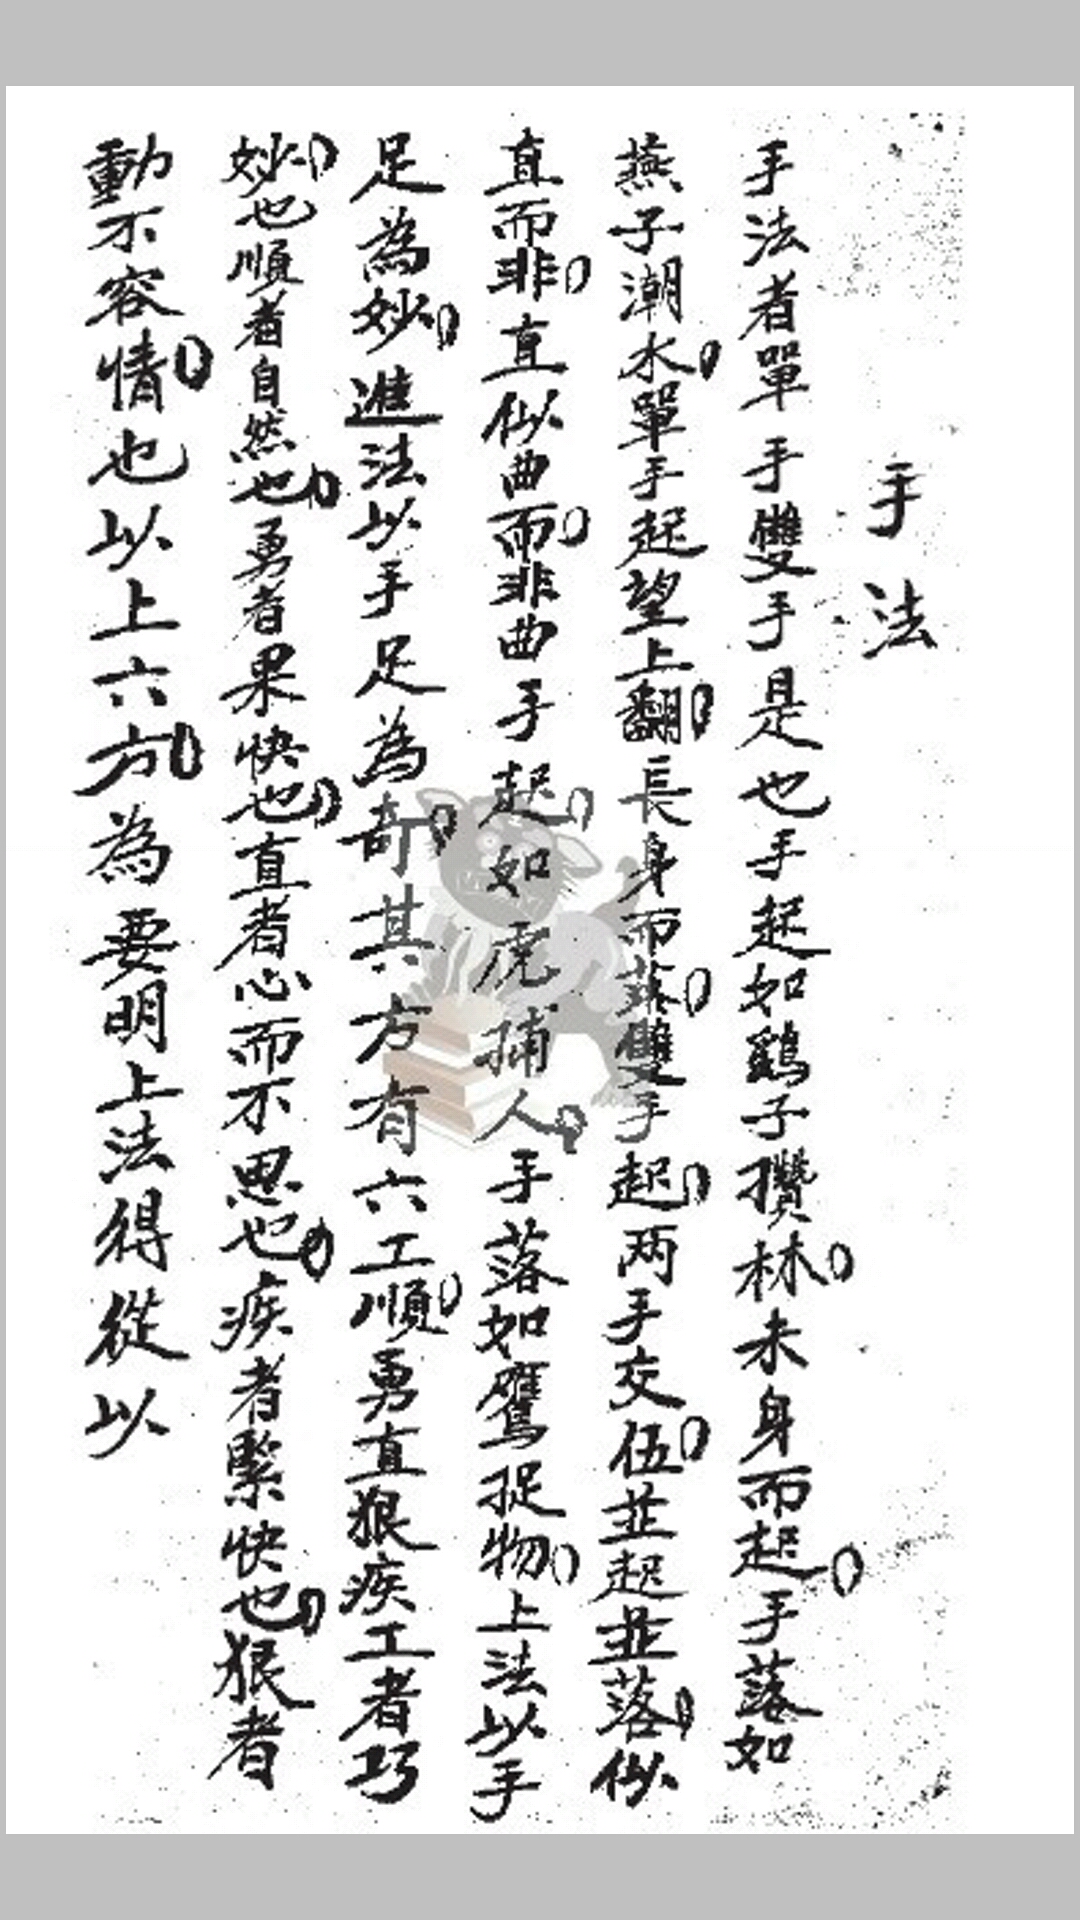 手法
手法者單手雙手是也手起如鷂子攢林未身而起手落如
燕子潮水單手起望上翻長身而落雙手起两手交伍並起並落似
直而非直似曲而非曲手起如虎捕人手落如鷹捉物上法以手
足為妙進法以手足為奇其方有六工順勇直狠疾工者巧
妙也順者自然也勇者果快也直者心而不思也疾者緊快也狠者
動不容情也以上六方為要明上法得從以